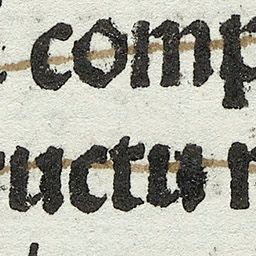 comp
ructu